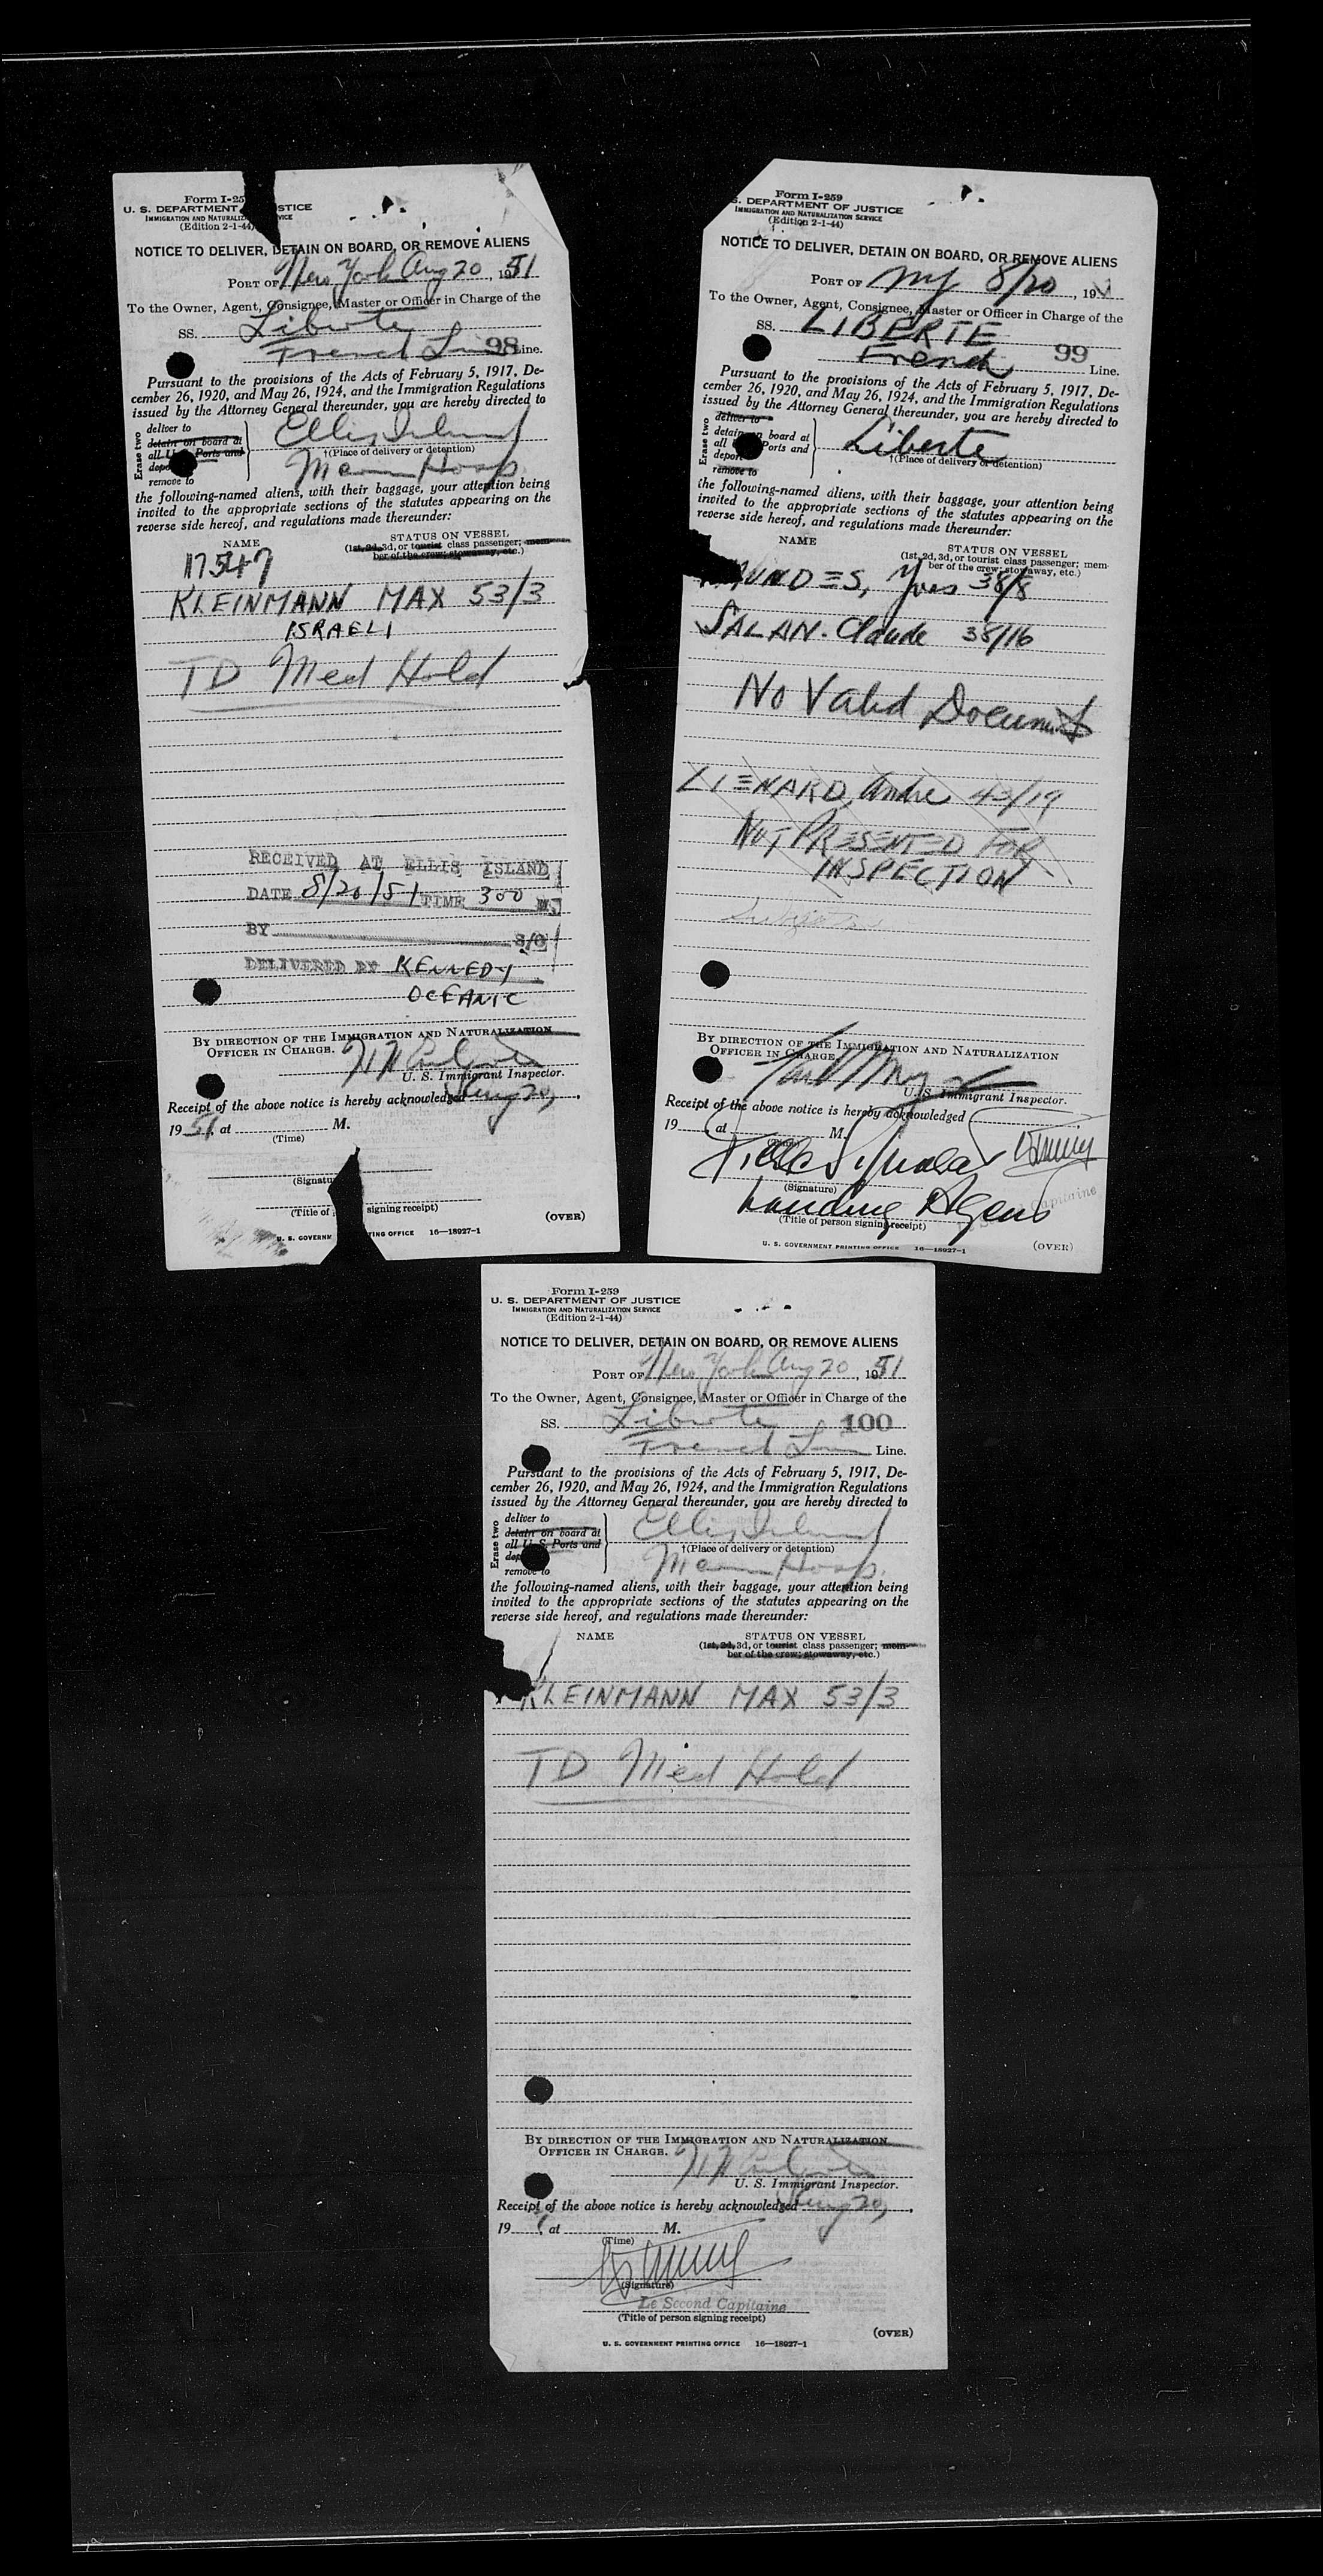 Form I-25
U. S. DEPARTMENT STICE
IMMIGRATION AND NATURALIZ VICE
(Edition 2-1-44)
NOTICE TO DELIVER, DETAIN ON BOARD, OR REMOVE ALIENS
PORT OF New York Aug 20, 1951
To the Owner, Agent, Consignee, Master or Officer in Charge of the
SS. Liberte
French Line 98 Line.
Pursuant to the provisions of the Acts of February 5, 1917, De-
cember 26, 1920, and May 26, 1924, and the Immigration Regulations
issued by the Attorney General thereunder, you are hereby directed to
Erase two
deliver to
detain on board at
all U.S. Ports and
depo
remove to
Ellis Island
†(Place of delivery or detention)
Hosp.
the following-named aliens, with their baggage, your attention being
invited to the appropriate sections of the statutes appearing on the
reverse side hereof, and regulations made thereunder:
NAME STATUS ON VESSEL
(1st, 2d, 3d, or tourist class passenger; mem-
ber of the crew; stowaway, etc.)
17547
KLEINMANN MAX 53/3
ISRAELI
TD Med Hold
RECEIVED AT ELLIS ISLAND
DATE 8/20/51 TIME 300 M
BY S/O
DELIVERED BY KENNEDY
OCEANIC
BY DIRECTION OF THE IMMIGRATION AND NATURALIZATION
OFFICER IN CHARGE.
U. S. Immigrant Inspector.
Receipt of the above notice is hereby acknowledged Aug 20,
1951, at M.
(Time)
(Signatu
(Title of signing receipt)
(OVER)
U. S. GOVERNM TING OFFICE 16—18927-1
Form I-259
S. DEPARTMENT OF JUSTICE
IMMIGRATION AND NATURALIZATION SERVICE
(Edition 2-1-44)
NOTICE TO DELIVER, DETAIN ON BOARD, OR REMOVE ALIENS
PORT OF NY 8/20, 19
To the Owner, Agent, Consignee, Master or Officer in Charge of the
SS. LIBERTE
French 99 Line.
Pursuant to the provisions of the Acts of February 5, 1917, De-
cember 26, 1920, and May 26, 1924, and the Immigration Regulations
issued by the Attorney General thereunder, you are hereby directed to
Erase two
deliver to
detain on board at
all Ports and
deport
remove to
Liberte
†(Place of delivery or detention)
the following-named aliens, with their baggage, your attention being
invited to the appropriate sections of the statutes appearing on the
reverse side hereof, and regulations made thereunder:
NAME STATUS ON VESSEL
(1st, 2d, 3d, or tourist class passenger; mem-
ber of the crew; stowaway, etc.)
AUNDES, Yves 38/8
SALAN. Claude 38/16
No Valid Document
LIENARD, Andre 43/19
NOT PRESENTED FOR
INSPECTION
BY DIRECTION OF THE IMMIGRATION AND NATURALIZATION
OFFICER IN CHARGE
U. S. Immigrant Inspector.
Receipt of the above notice is hereby acknowledged
19 , at M.
(Time)
(Signature)
Landing Agent
Capitaine
(Title of person signing receipt)
U. S. GOVERNMENT PRINTING OFFICE 16—18927-1
(OVER)
Form I-259
U. S. DEPARTMENT OF JUSTICE
IMMIGRATION AND NATURALIZATION SERVICE
(Edition 2-1-44)
NOTICE TO DELIVER, DETAIN ON BOARD, OR REMOVE ALIENS
PORT OF New York Aug 20, 1951
To the Owner, Agent, Consignee, Master or Officer in Charge of the
SS. Liberte 100
French Line Line.
Pursuant to the provisions of the Acts of February 5, 1917, De-
cember 26, 1920, and May 26, 1924, and the Immigration Regulations
issued by the Attorney General thereunder, you are hereby directed to
Erase two
deliver to
detain on board at
all U. S. Ports and
dep
remove to
Ellis Island
†(Place of delivery or detention)
Hosp.
the following-named aliens, with their baggage, your attention being
invited to the appropriate sections of the statutes appearing on the
reverse side hereof, and regulations made thereunder:
NAME STATUS ON VESSEL
(1st, 2d, 3d, or tourist class passenger; mem-
ber of the crew; stowaway, etc.)
KLEINMANN MAX 53/3
TD Med Hold
BY DIRECTION OF THE IMMIGRATION AND NATURALIZATION
OFFICER IN CHARGE.
U. S. Immigrant Inspector.
Receipt of the above notice is hereby acknowledged Aug 20,
19 , at M.
(Time)
(Signature)
Le Second Capitaine
(Title of person signing receipt)
(OVER)
U. S. GOVERNMENT PRINTING OFFICE 16—18927-1